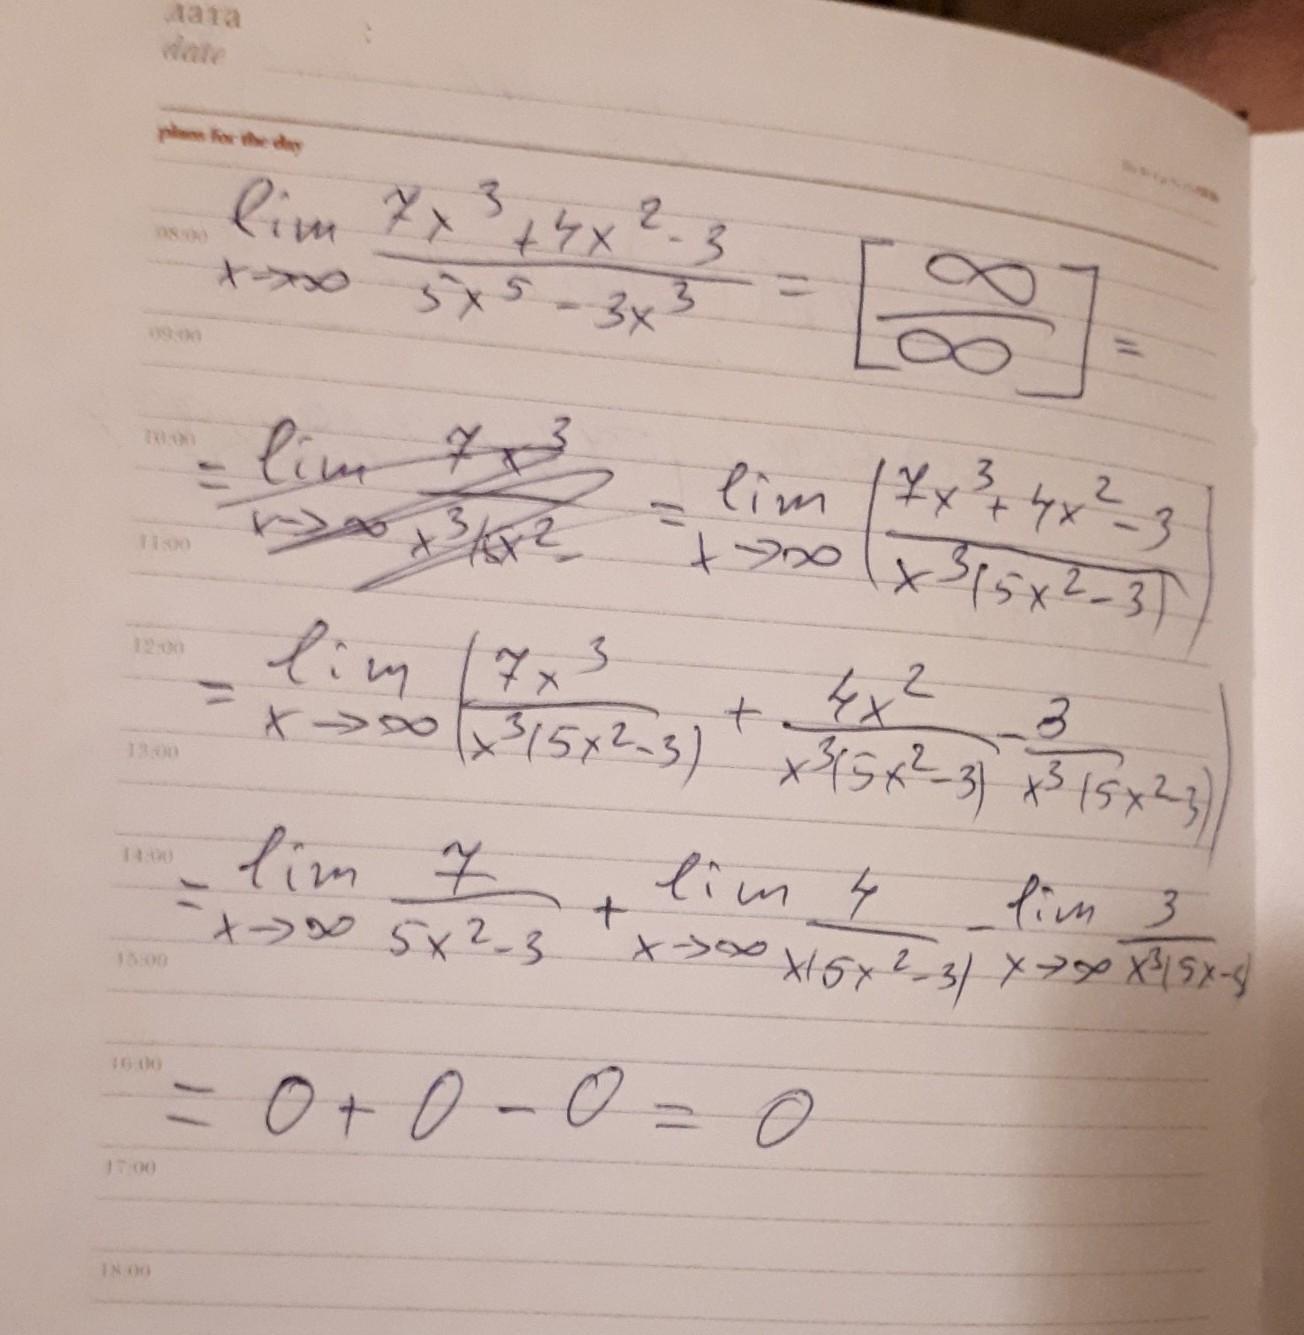 дата
date
plans for the day
08:00 lim x→∞ (7x³+4x²-3)/(5x⁵-3x³) = [∞/∞] =
09:00
10:00
= lim x→∞ 7x³/x³(5x²- = lim x→∞ ((7x³+4x²-3)/(x³(5x²-3)))
11:00
12:00
= lim x→∞ (7x³/(x³(5x²-3)) + 4x²/(x³(5x²-3)) - 3/(x³(5x²-3)))
13:00
14:00
= lim x→∞ 7/(5x²-3) + lim x→∞ 4/(x(5x²-3)) - lim x→∞ 3/(x³(5x-3)
15:00
16:00
= 0 + 0 - 0 = 0
17:00
18:00